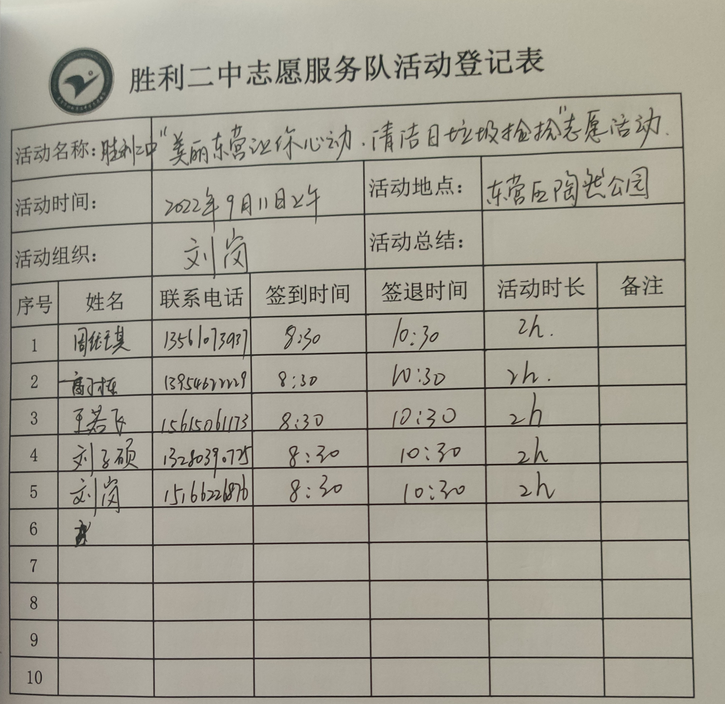 胜利二中志愿服务队活动登记表
活动名称：胜利二中"美丽东营让你心动.清洁日垃圾捡拾"志愿活动.
活动时间： 2022年9月11日上午 活动地点： 东营区陶然公园
活动组织： 刘岗 活动总结：
序号 姓名 联系电话 签到时间 签退时间 活动时长 备注
1 13561073937 8:30 10:30 2h.
2 13954622229 8:30 10:30 2h.
3 王若飞 15615061173 8:30 10:30 2h
4 刘子硕 13280390725 8:30 10:30 2h
5 刘岗 15166226876 8:30 10:30 2h
6
7
8
9
10